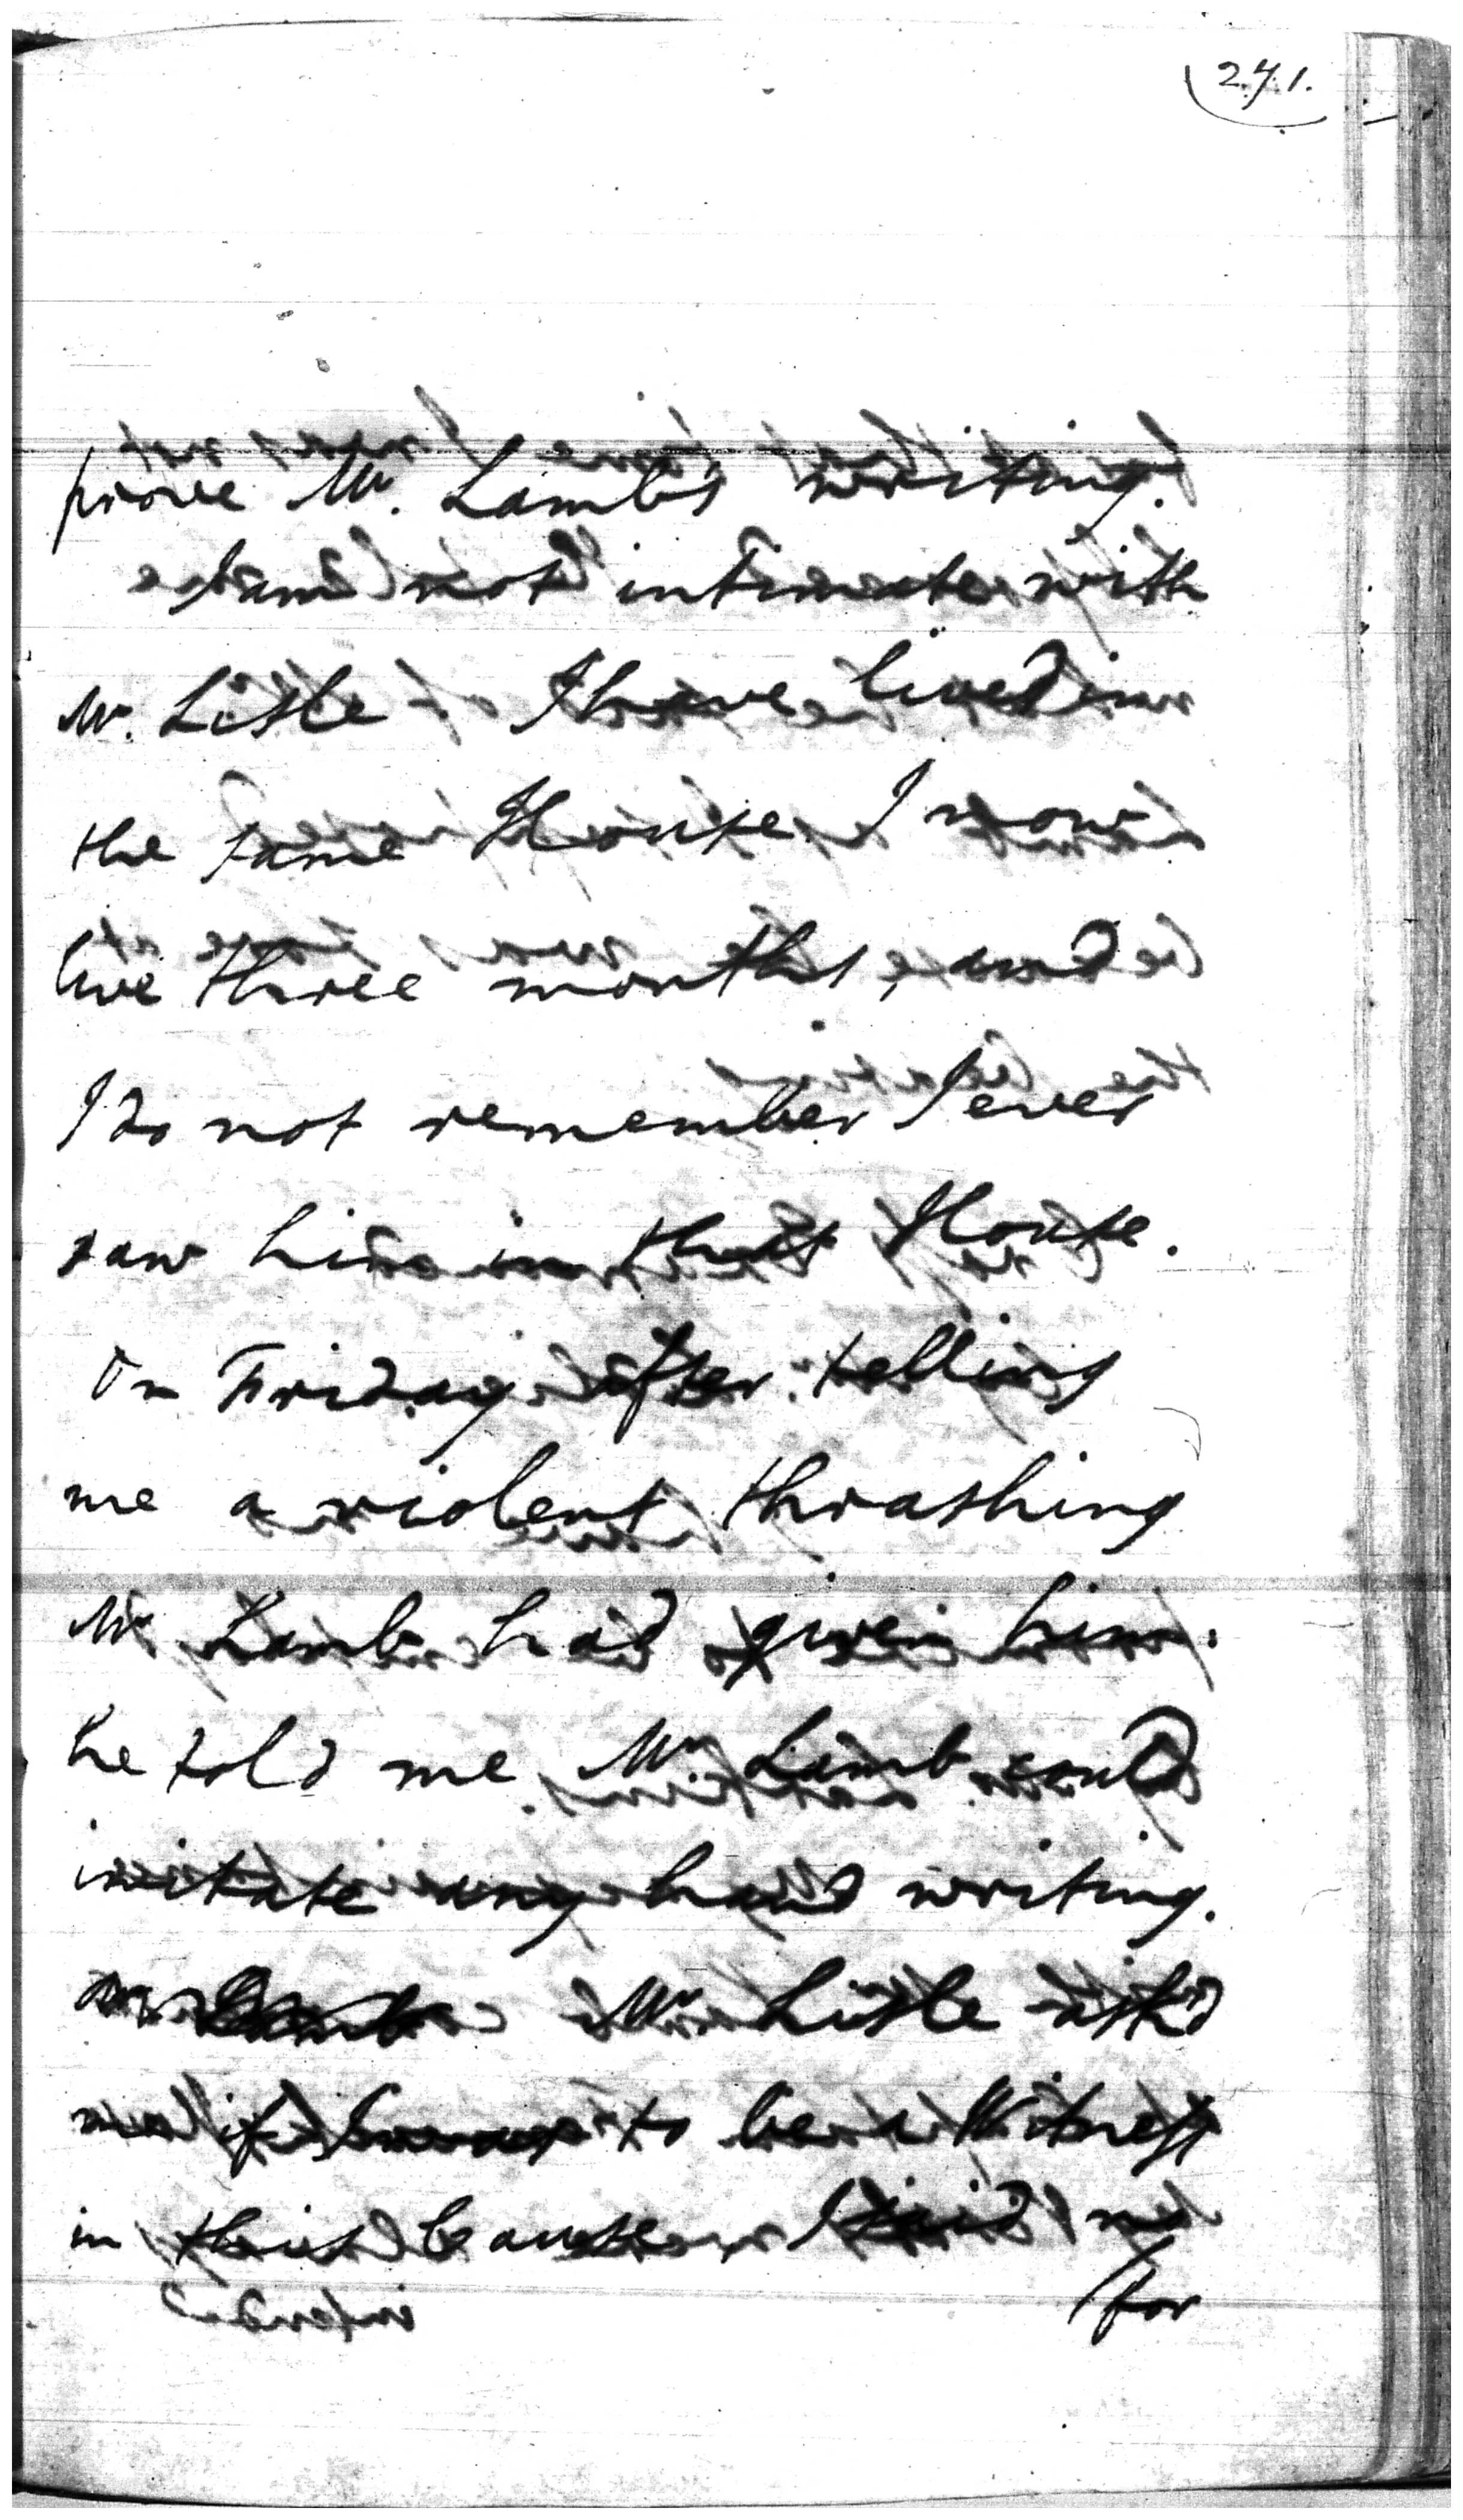 271.
prove Mr. Lamb's writing.
I am not intimate with
Mr. Lisle I have lived in
the same House I now
live three months, and
I do not remember I ever
saw him in that House.
On Friday after telling
me a violent thrashing
Mr Lamb had given him.
he told me Mr Lamb could
imitate any hand writing.
Mr Lisle ask'd
me if I was to be a Witness
in this Cause I said no
for